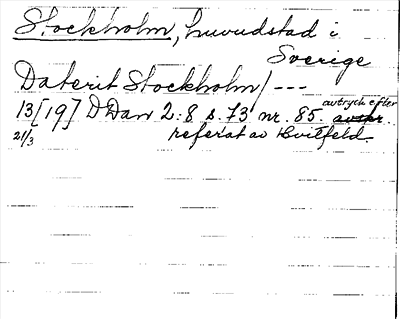 Stockholm, huvudstad i
Sverige
Daterit Stockholm/ ---
13[19] DDan 2:8 s. 73 nr. 85. avtryck efter
21/3 referat av Hvitfeld.